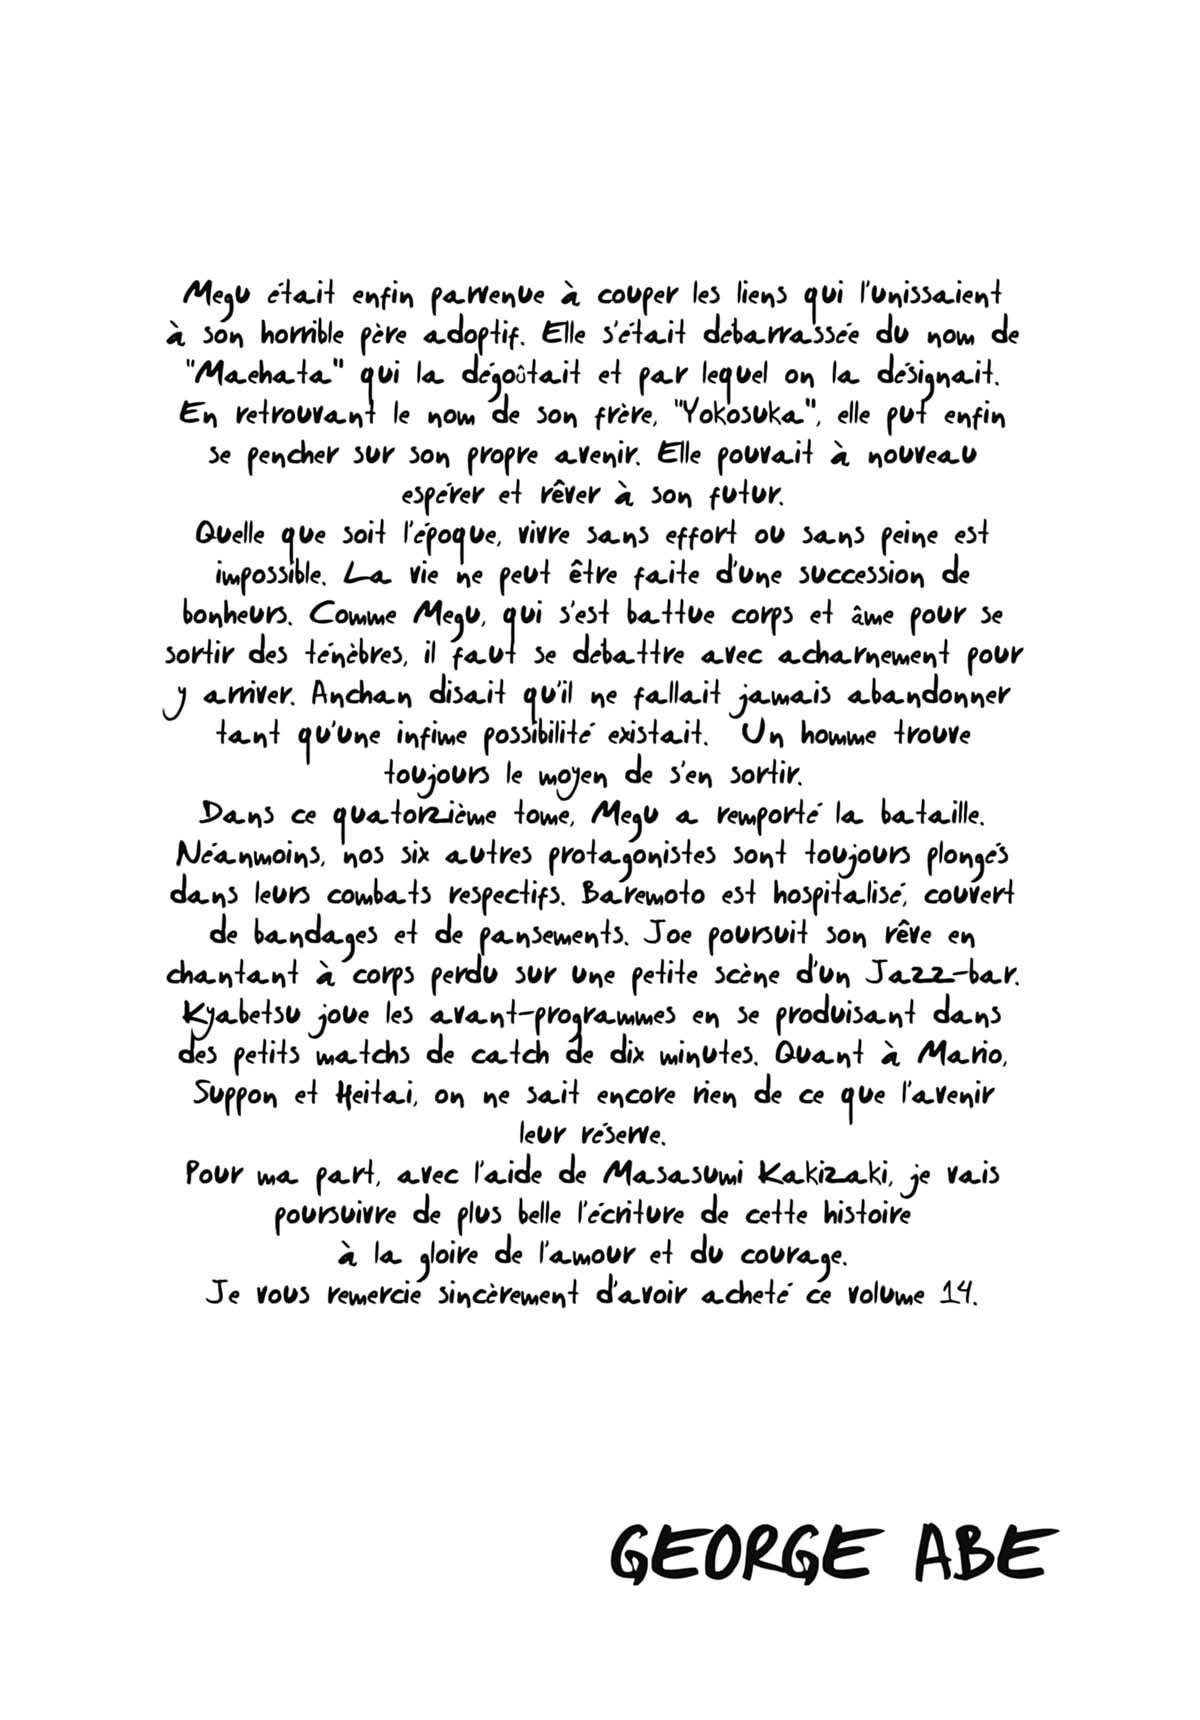 Megu était enfin parvenue à couper les liens qui l'unissaient
à son horrible père adoptif. Elle s'était débarrassée du nom de
"Maehata" qui la dégoûtait et par lequel on la désignait.
En retrouvant le nom de son frère, "Yokosuka", elle put enfin
se pencher sur son propre avenir. Elle pouvait à nouveau
espérer et rêver à son futur.
Quelle que soit l'époque, vivre sans effort ou sans peine est
impossible. La vie ne peut être faite d'une succession de
bonheurs. Comme Megu, qui s'est battue corps et âme pour se
sortir des ténèbres, il faut se débattre avec acharnement pour
y arriver. Anchan disait qu'il ne fallait jamais abandonner
tant qu'une infime possibilité existait. Un homme trouve
toujours le moyen de s'en sortir.
Dans ce quatorzième tome, Megu a remporté la bataille.
Néanmoins, nos six autres protagonistes sont toujours plongés
dans leurs combats respectifs. Baremoto est hospitalisé, couvert
de bandages et de pansements. Joe poursuit son rêve en
chantant à corps perdu sur une petite scène d'un Jazz-bar.
Kyabetsu joue les avant-programmes en se produisant dans
des petits matchs de catch de dix minutes. Quant à Mario,
Suppon et Heitai, on ne sait encore rien de ce que l'avenir
leur réserve.
Pour ma part, avec l'aide de Masasumi Kakizaki, je vais
poursuivre de plus belle l'écriture de cette histoire
à la gloire de l'amour et du courage.
Je vous remercie sincèrement d'avoir acheté ce volume 14.
GEORGE ABE